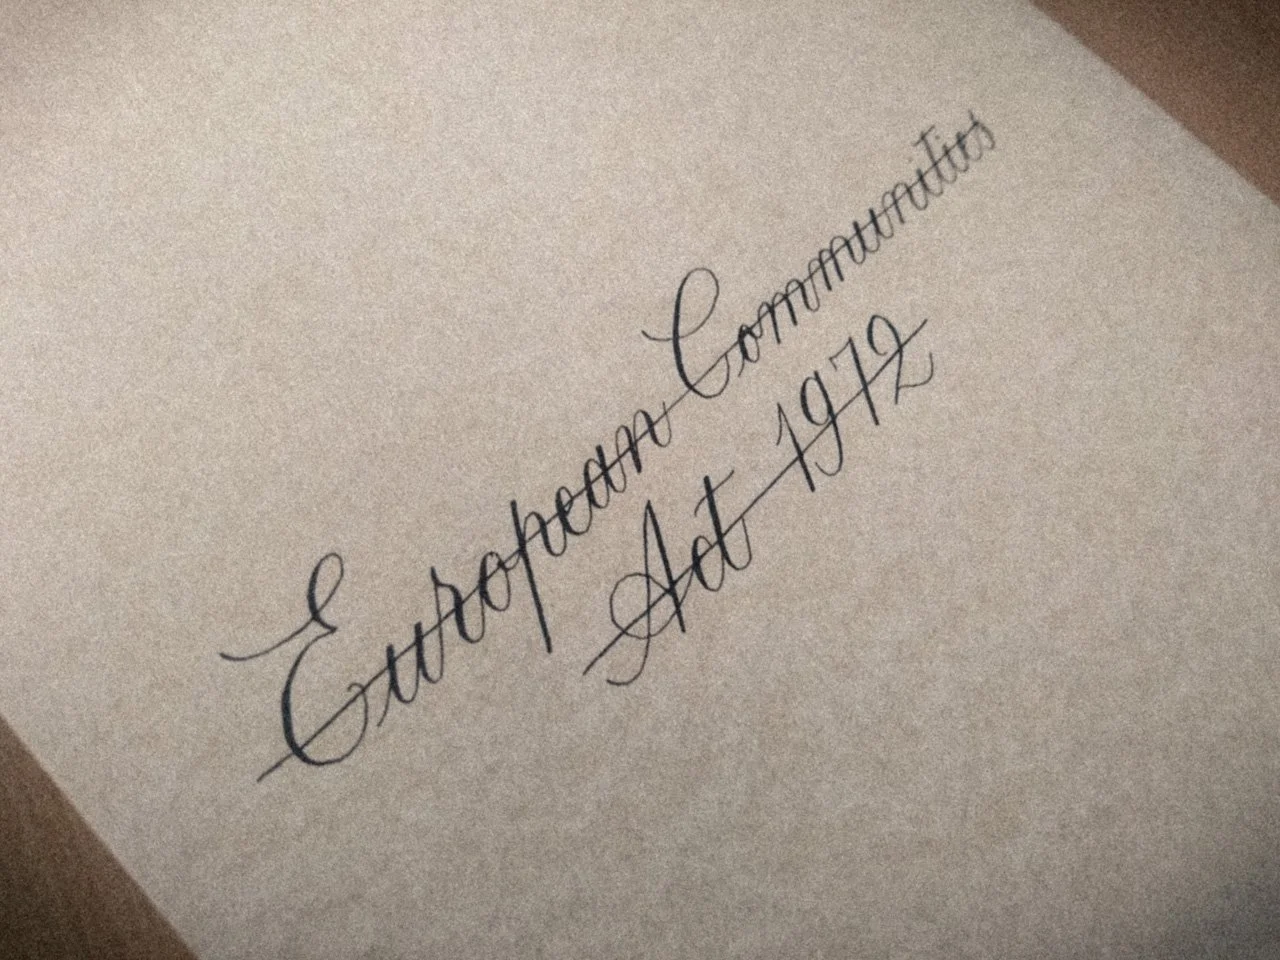 European Communities
Act 1972